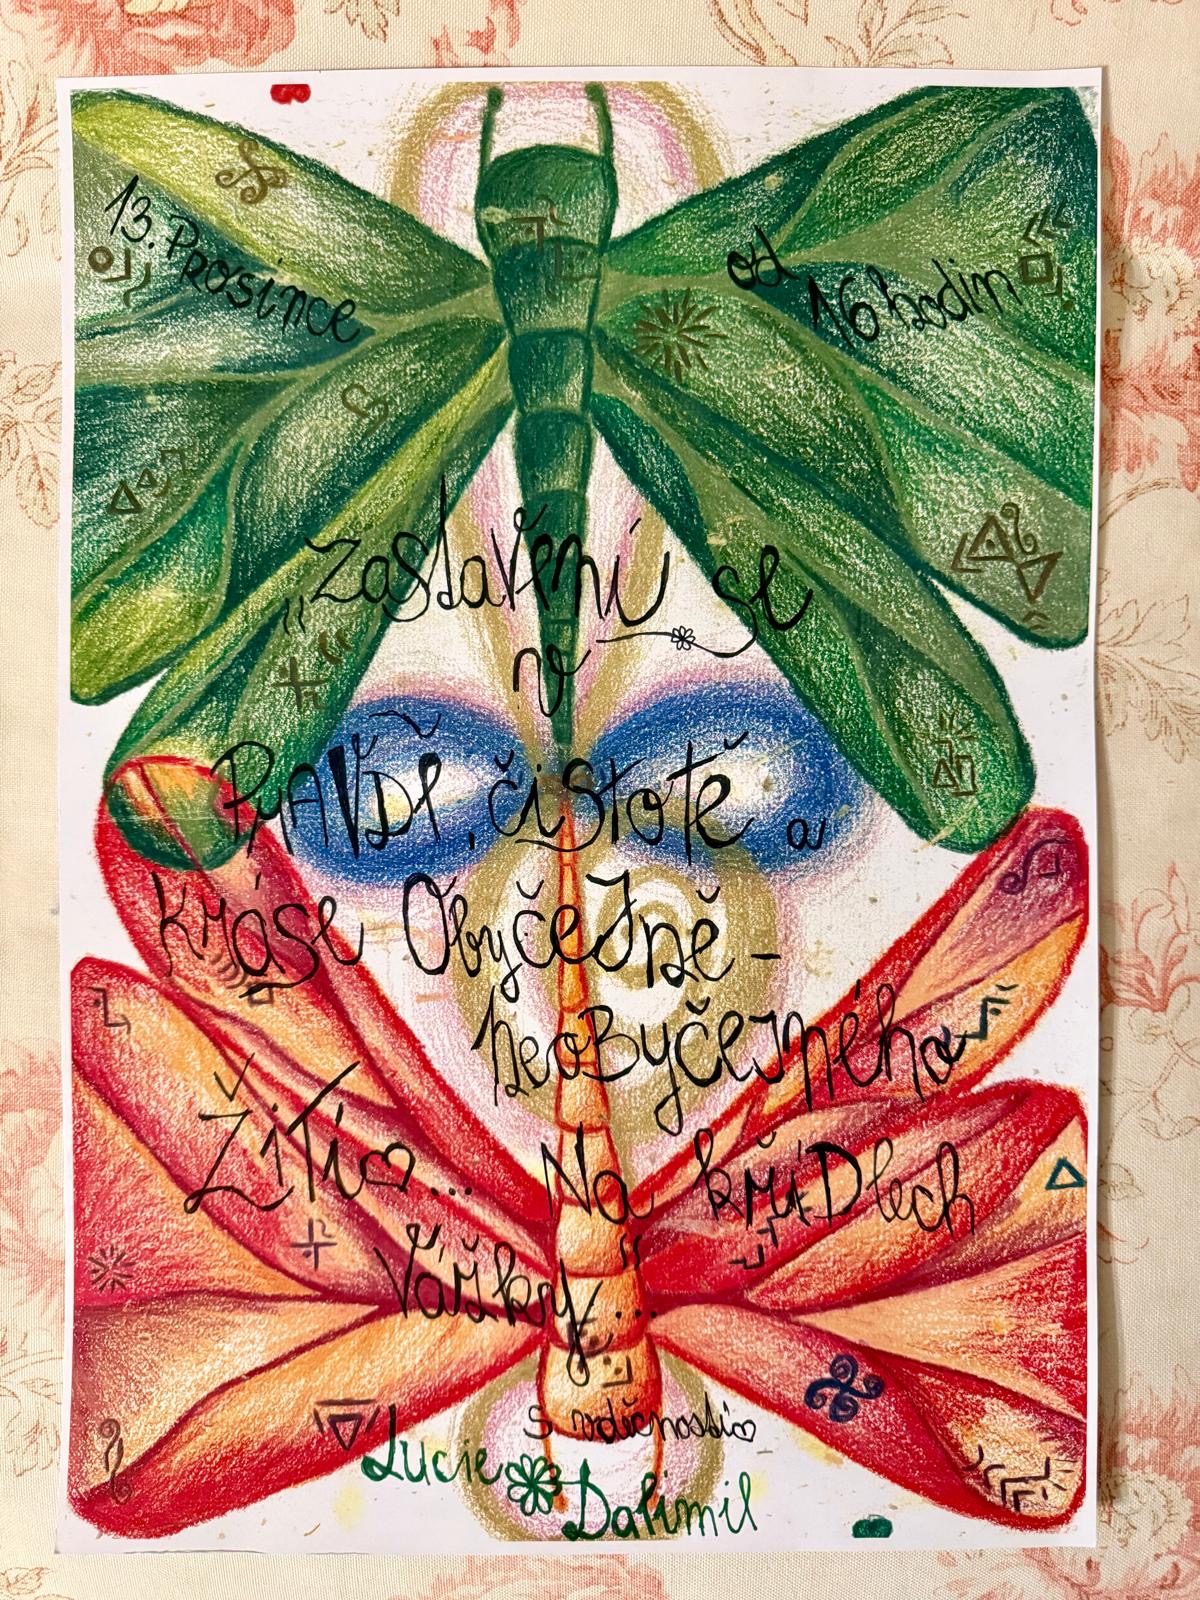 13. Prosince
od 16 hodin
Zastavení se
v
PrAVDĚ, čistotě a
kráse Obyčejně -
neobyčejného
Žití♡... Na křídlech
Vážky...
S vděčností♡
Lucie
Dalimil